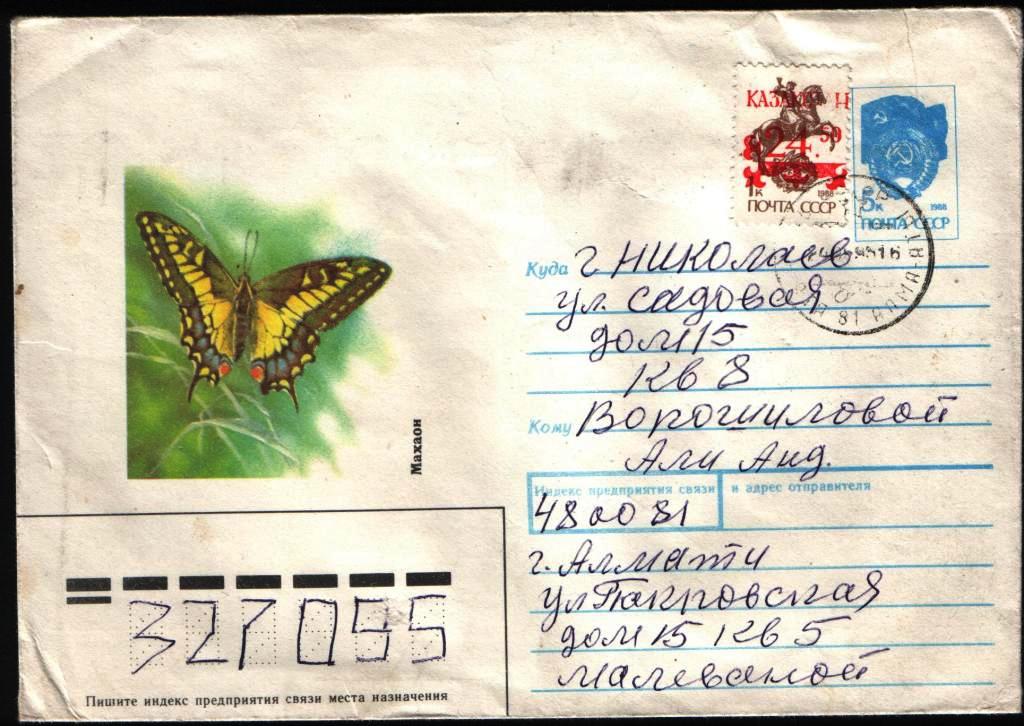 КАЗАХСТАН
24.50
1к 1988
ПОЧТА СССР
5к 1988
ПОЧТА СССР
Куда г. Николаев
ул. Садовая
дом 15
кв 8
Кому Ворошиловой
Али Анд.
Махаон
Индекс предприятия связи и адрес отправителя
480081
г. Алмати
ул Пакровская
дом 15 кв 5
Малеваной
327055
Пишите индекс предприятия связи места назначения
81 АЛМА